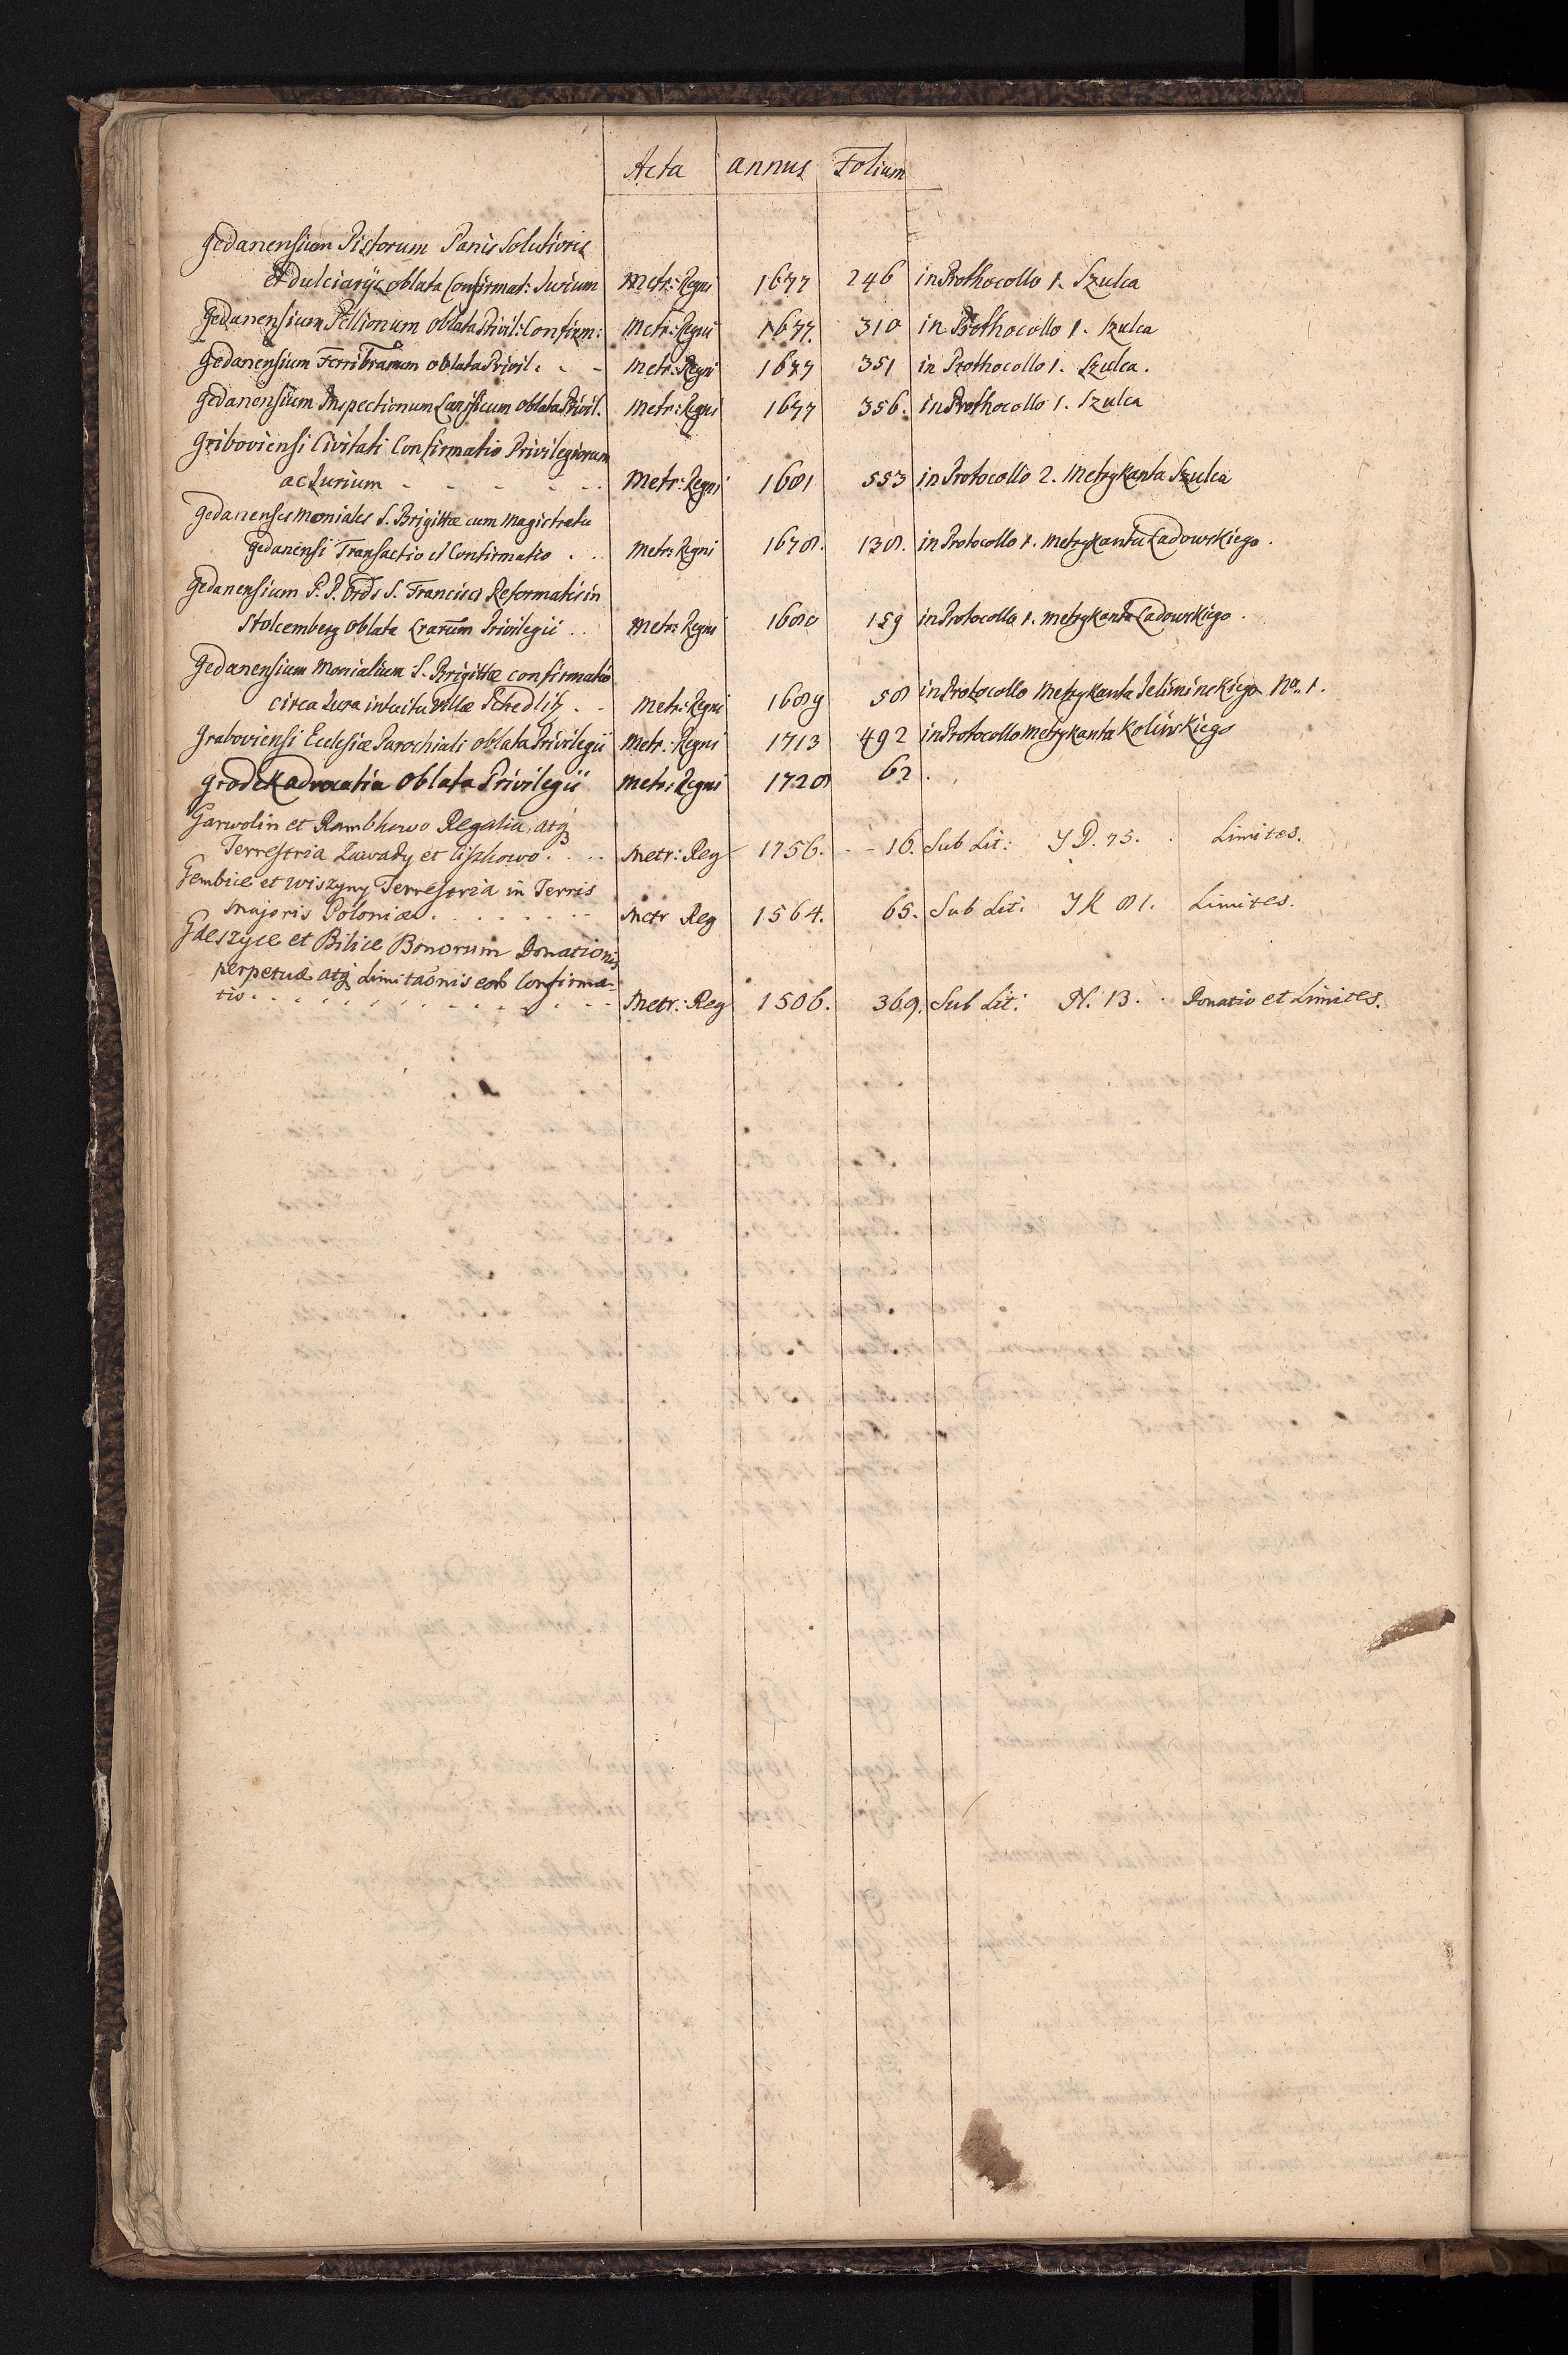 Acta annus Folium
Gedanensium Pistorum Panis Solutioris
et dulciarijs oblata Confirmat: Jurium Metr: Regni 1677 246 in Prothocollo 1. Szulca
Gedanensium Pellionum Oblata Privil: Confirm: Metr: Regni 1677. 310 in Prothocollo 1. Szulca
Gedanensium oblata Privil. Metr: Regni 1677 351 in Prothocollo 1. Szulca.
Gedanensium Inspectionum Oblata Privil. Metr: Regni 1677 356. in Prothocollo 1. Szulca
Griboviensi Civitati Confirmatio Privilegiorum
ac Jurium Metr: Regni 1681 553 in Protocollo 2. Metrykanta Szulca
Gedanenses Moniales S. Brigittæ cum Magistratu
Gedanensi Transactio et Confirmatio Metr: Regni 1678. 138. in Protocollo 1. Metrykanta Ladowskiego.
Gedanensium P. P. Ords S. Francisci Reformatis in
Stolcemberg Oblata Lrarum Privilegii Metr: Regni 1680 159 in Protocollo 1. Metrykanta Ladowskiego.
Gedanensium Monialium S. Brigittæ confirmatio
circa Jura intuitu villæ Schedlitz Metr: Regni 1689 58 in Protocollo Metrykanta No. 1.
Graboviensi Ecclesiæ Parochiali Oblata Privilegii Metr: Regni 1713 492 in Protocollo Metrykanta Kolinskiego
Grodek advocatia Oblata Privilegii Metr: Regni 1728 62.
Garwolin et Rambkowo Regalia, atq
Terrestria Zawady et Metr: Reg 1756. 16. Sub Lit: Y D. 75. Limites.
Gembice et Wiszyny Terrestria in Terris
Majoris Poloniæ. Metr Reg 1564. 65. Sub Lit: Y K 81. Limites.
Gdeszyce et Bilice Bonorum Donationis
perpetuæ atq Limitaonis eorb Confirma-
tio. Metr: Reg 1506. 369. Sub Lit: N. 13. Donatio et Limites.